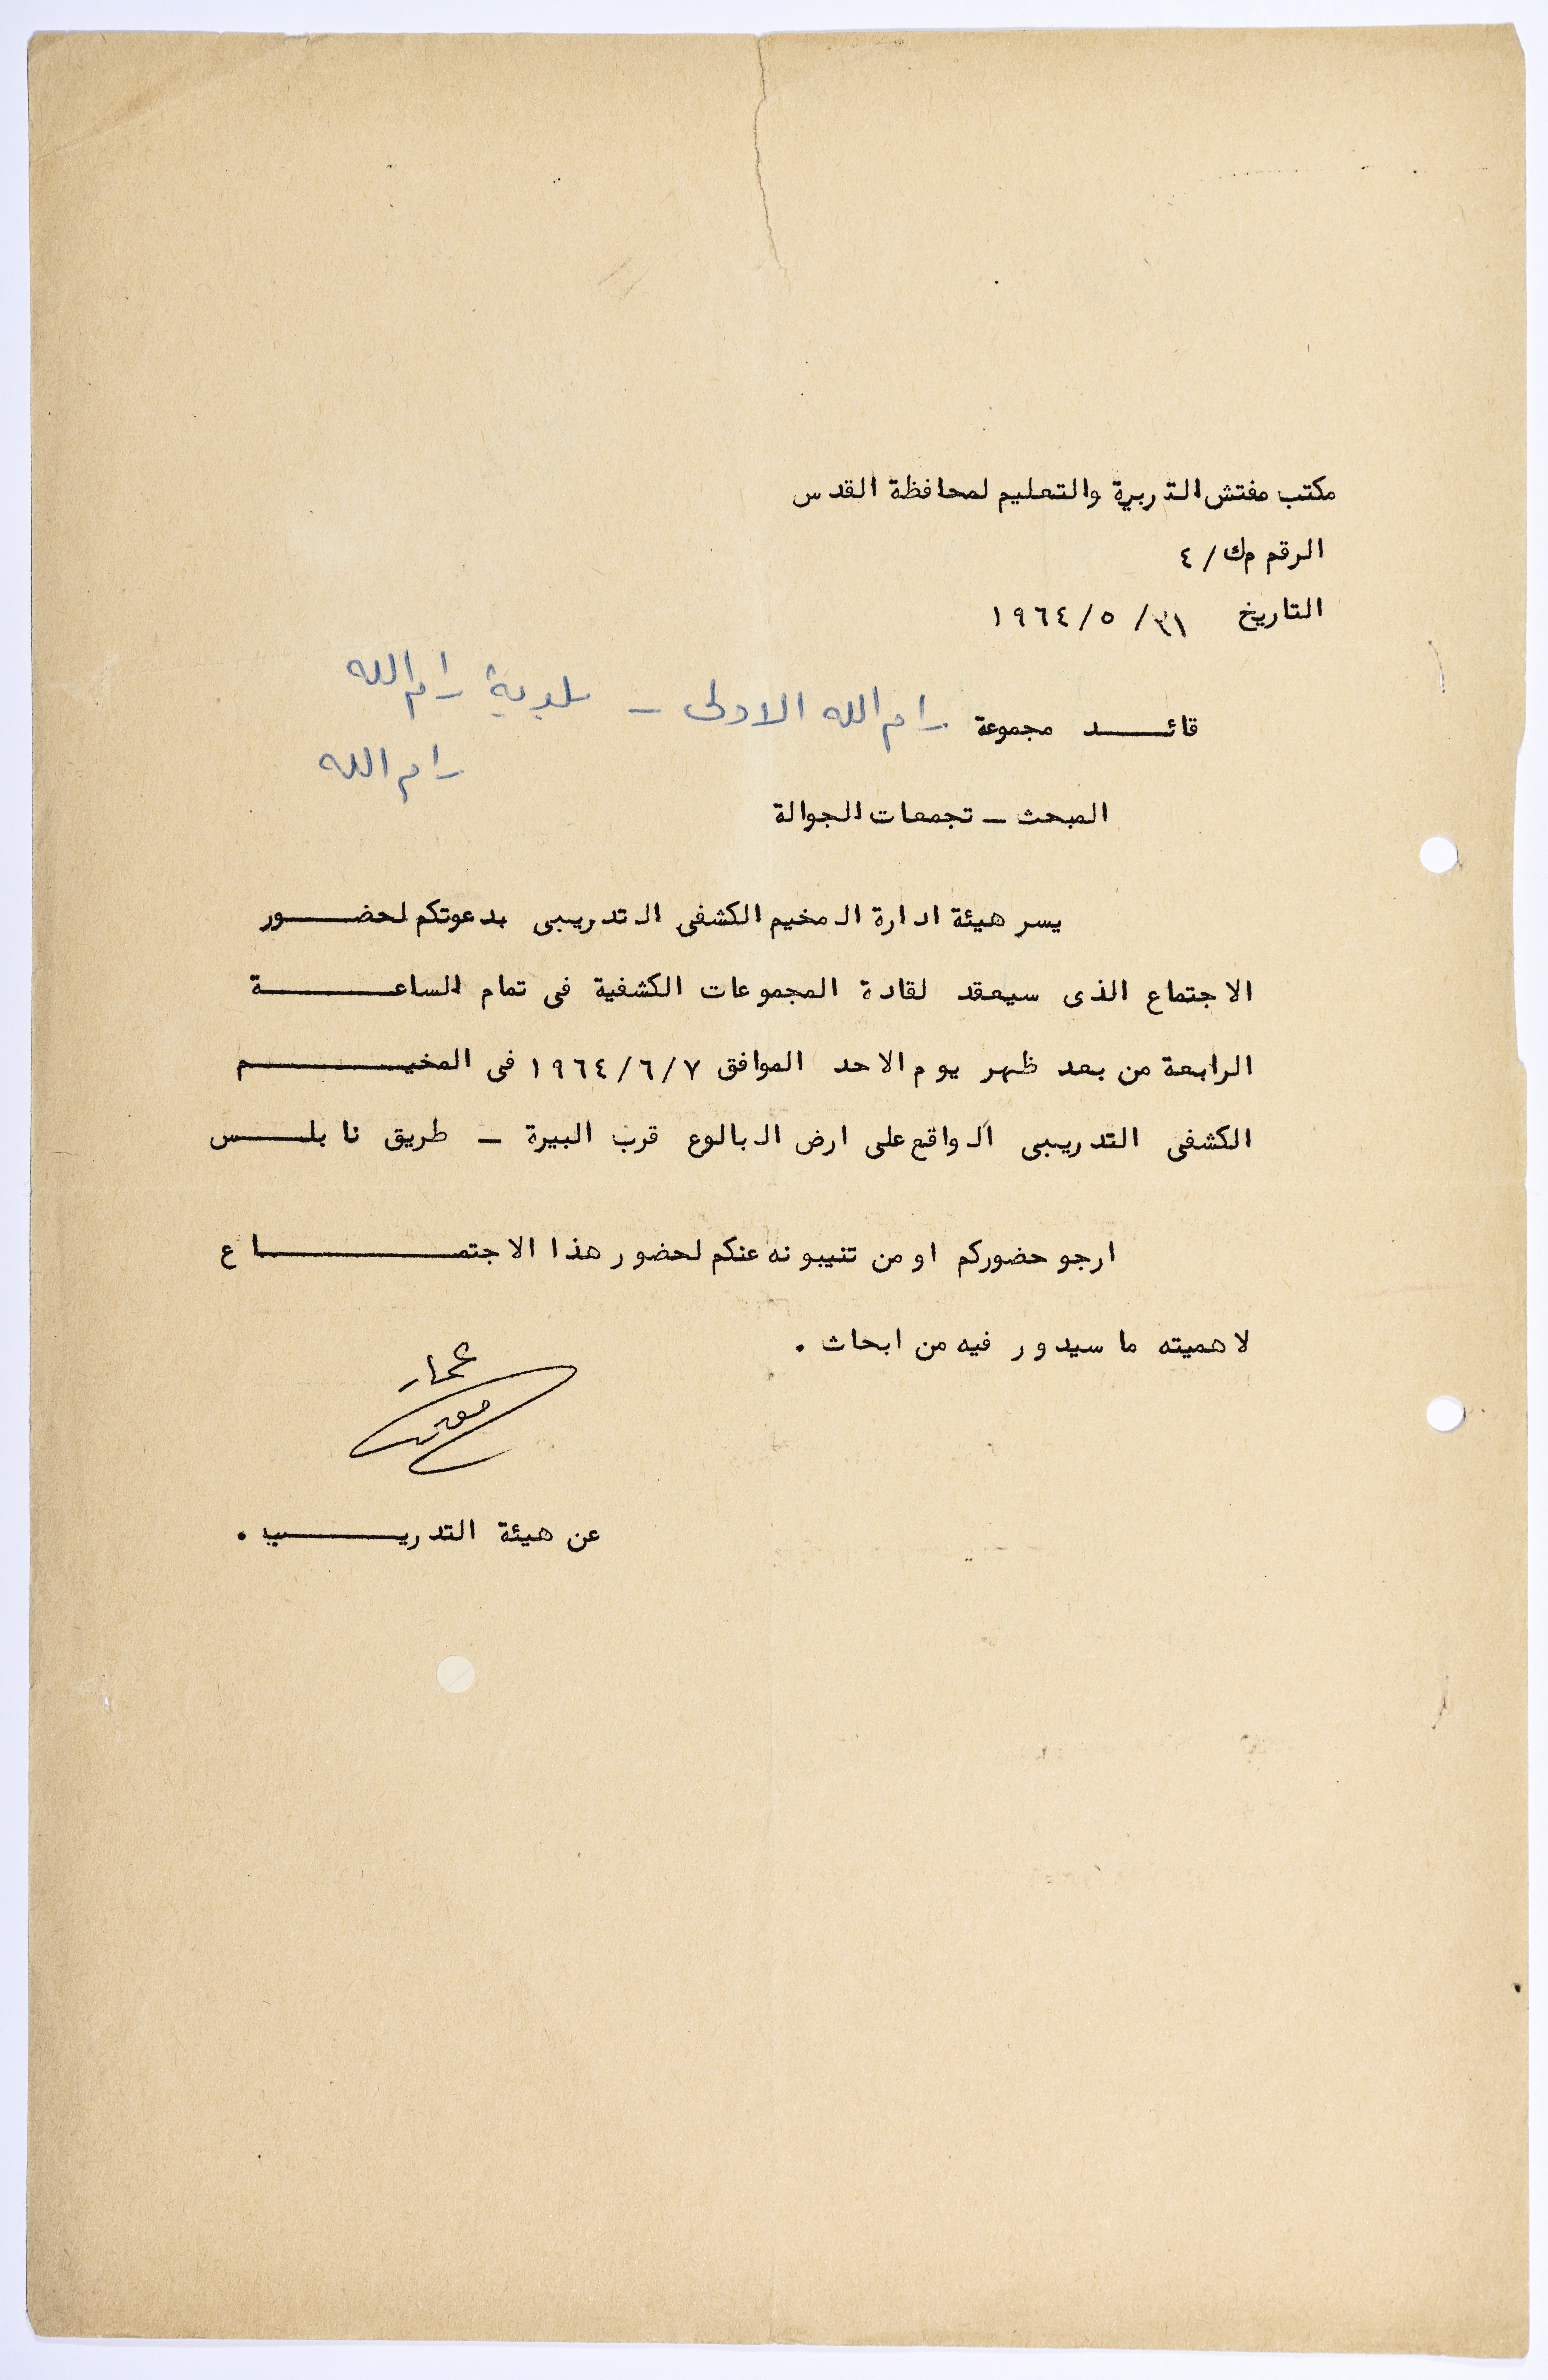 مكتب مفتش التربية والتعليم لمحافظة القدس
الرقم م ك/ ٤
التاريخ ٣١/ ٥/ ١٩٦٤
قائـــد مجموعة رام الله الاولى – بلدية رام الله
رام الله
المبحث – تجمعات الجوالة
يسر هيئة ادارة المخيم الكشفى التدريبى بدعوتكم لحضـــور
الاجتماع الذى سيعقد لقادة المجموعات الكشفية فى تمام الساعـــة
الرابعة من بعد ظهر يوم الاحد الموافق ١٩٦٤/٦/٧ فى المخيـــم
الكشفى التدريبى الواقع على ارض البالوع قرب البيرة – طريق نابلـــس
ارجو حضوركم او من تنيبونه عنكم لحضور هذا الاجتمـــاع
لاهميته ما سيدور فيه من ابحاث .
عن هيئة التدريـــب .